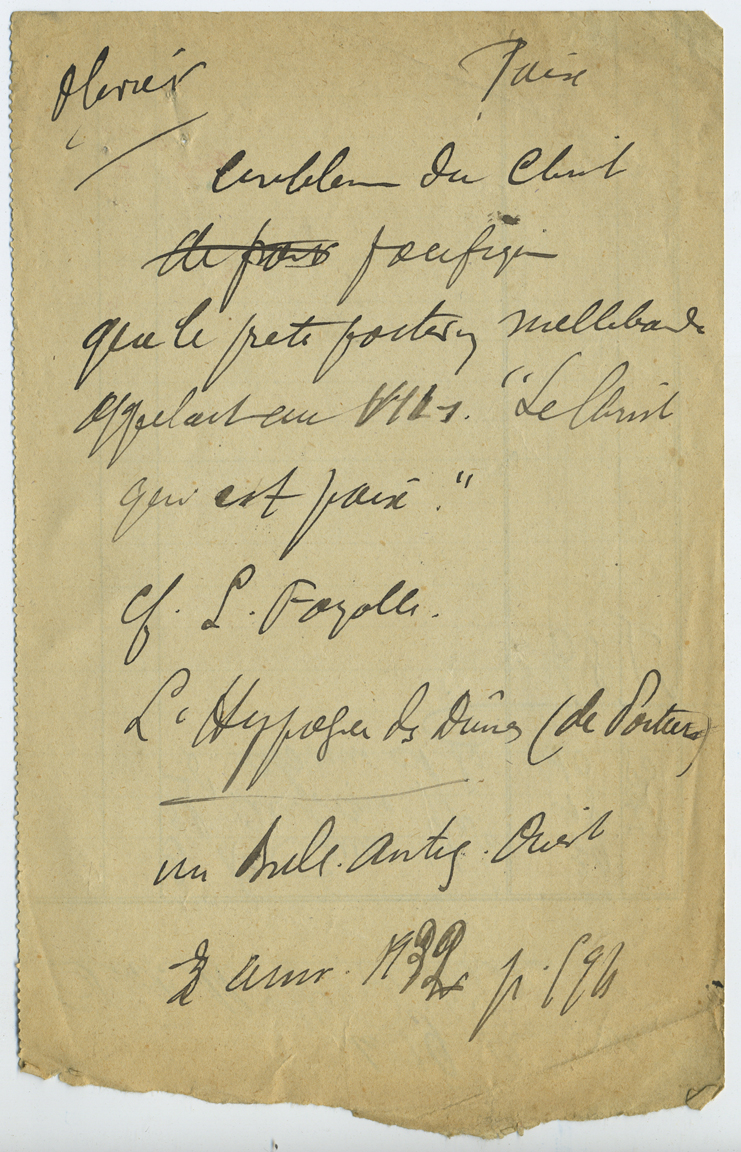 Olivier Paix
emblem du Christ
de paix pacifique
que le prete poitevin mellebaude
appelait au VIIe s. "Le Christ
qui est paix."
cf. L. Fayolle.
L'Hypogée des Dunes (de Poitiers)
in Bull. Antiq. Ouest
3e trim. 1932 p.